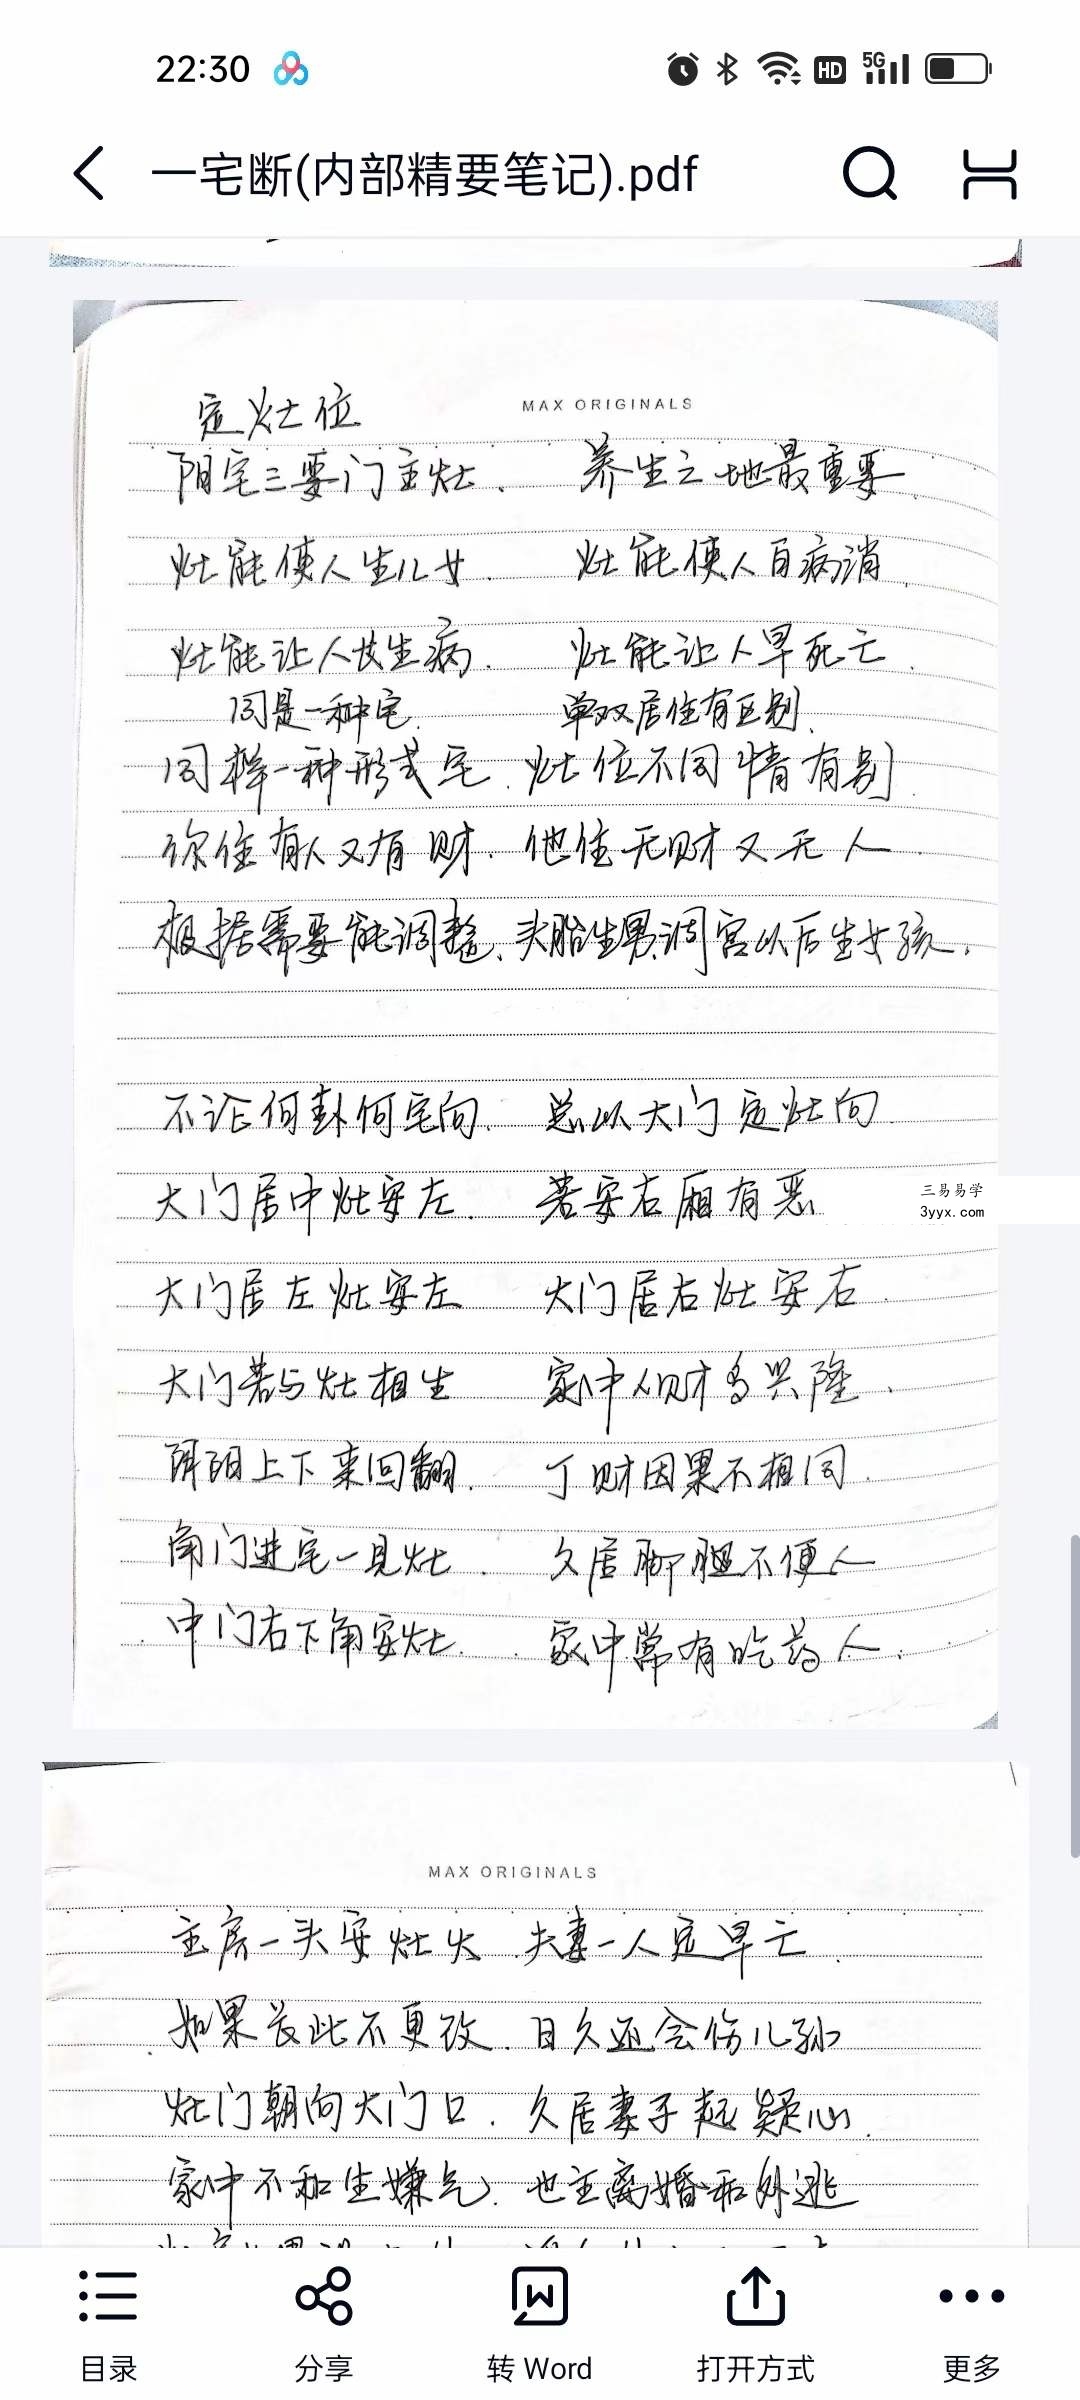 22:30
HD 5G
一宅断(内部精要笔记).pdf
MAX ORIGINALS
定灶位
阳宅三要门主灶. 养生之地最重要.
灶能使人生儿女. 灶能使人百病消.
灶能让人发生病. 灶能让人早死亡.
同是一种宅. 单双居住有区别.
同样一种形式宅. 灶位不同情有别.
你住有人又有财. 他住无财又无人.
根据需要能调整. 头胎生男调宫以后生女孩.
不论何卦何宅向. 总以大门定灶向.
大门居中灶安左. 若安右厢有恶
三易易学
3yyx.com
大门居左灶安左 大门居右灶安右.
大门若与灶相生 家中人财多兴隆.
阴阳上下来回翻. 丁财因果不相同.
角门进宅一见灶. 久居脚腿不便人
中门右下角安灶. 家中常有吃药人.
MAX ORIGINALS
主房一头安灶火 夫妻一人定早亡.
如果长此不更改. 日久还会伤儿孙
灶门朝向大门口. 久居妻子起疑心.
家中不和生嫌气. 也主离婚和外逃
目录 分享 转 Word 打开方式 更多